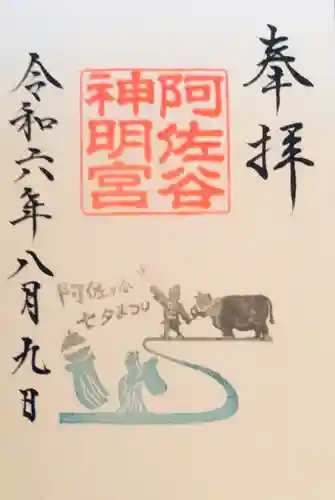 奉拝
阿佐谷
神明宮
阿佐ヶ谷
七夕まつり
令和六年八月九日